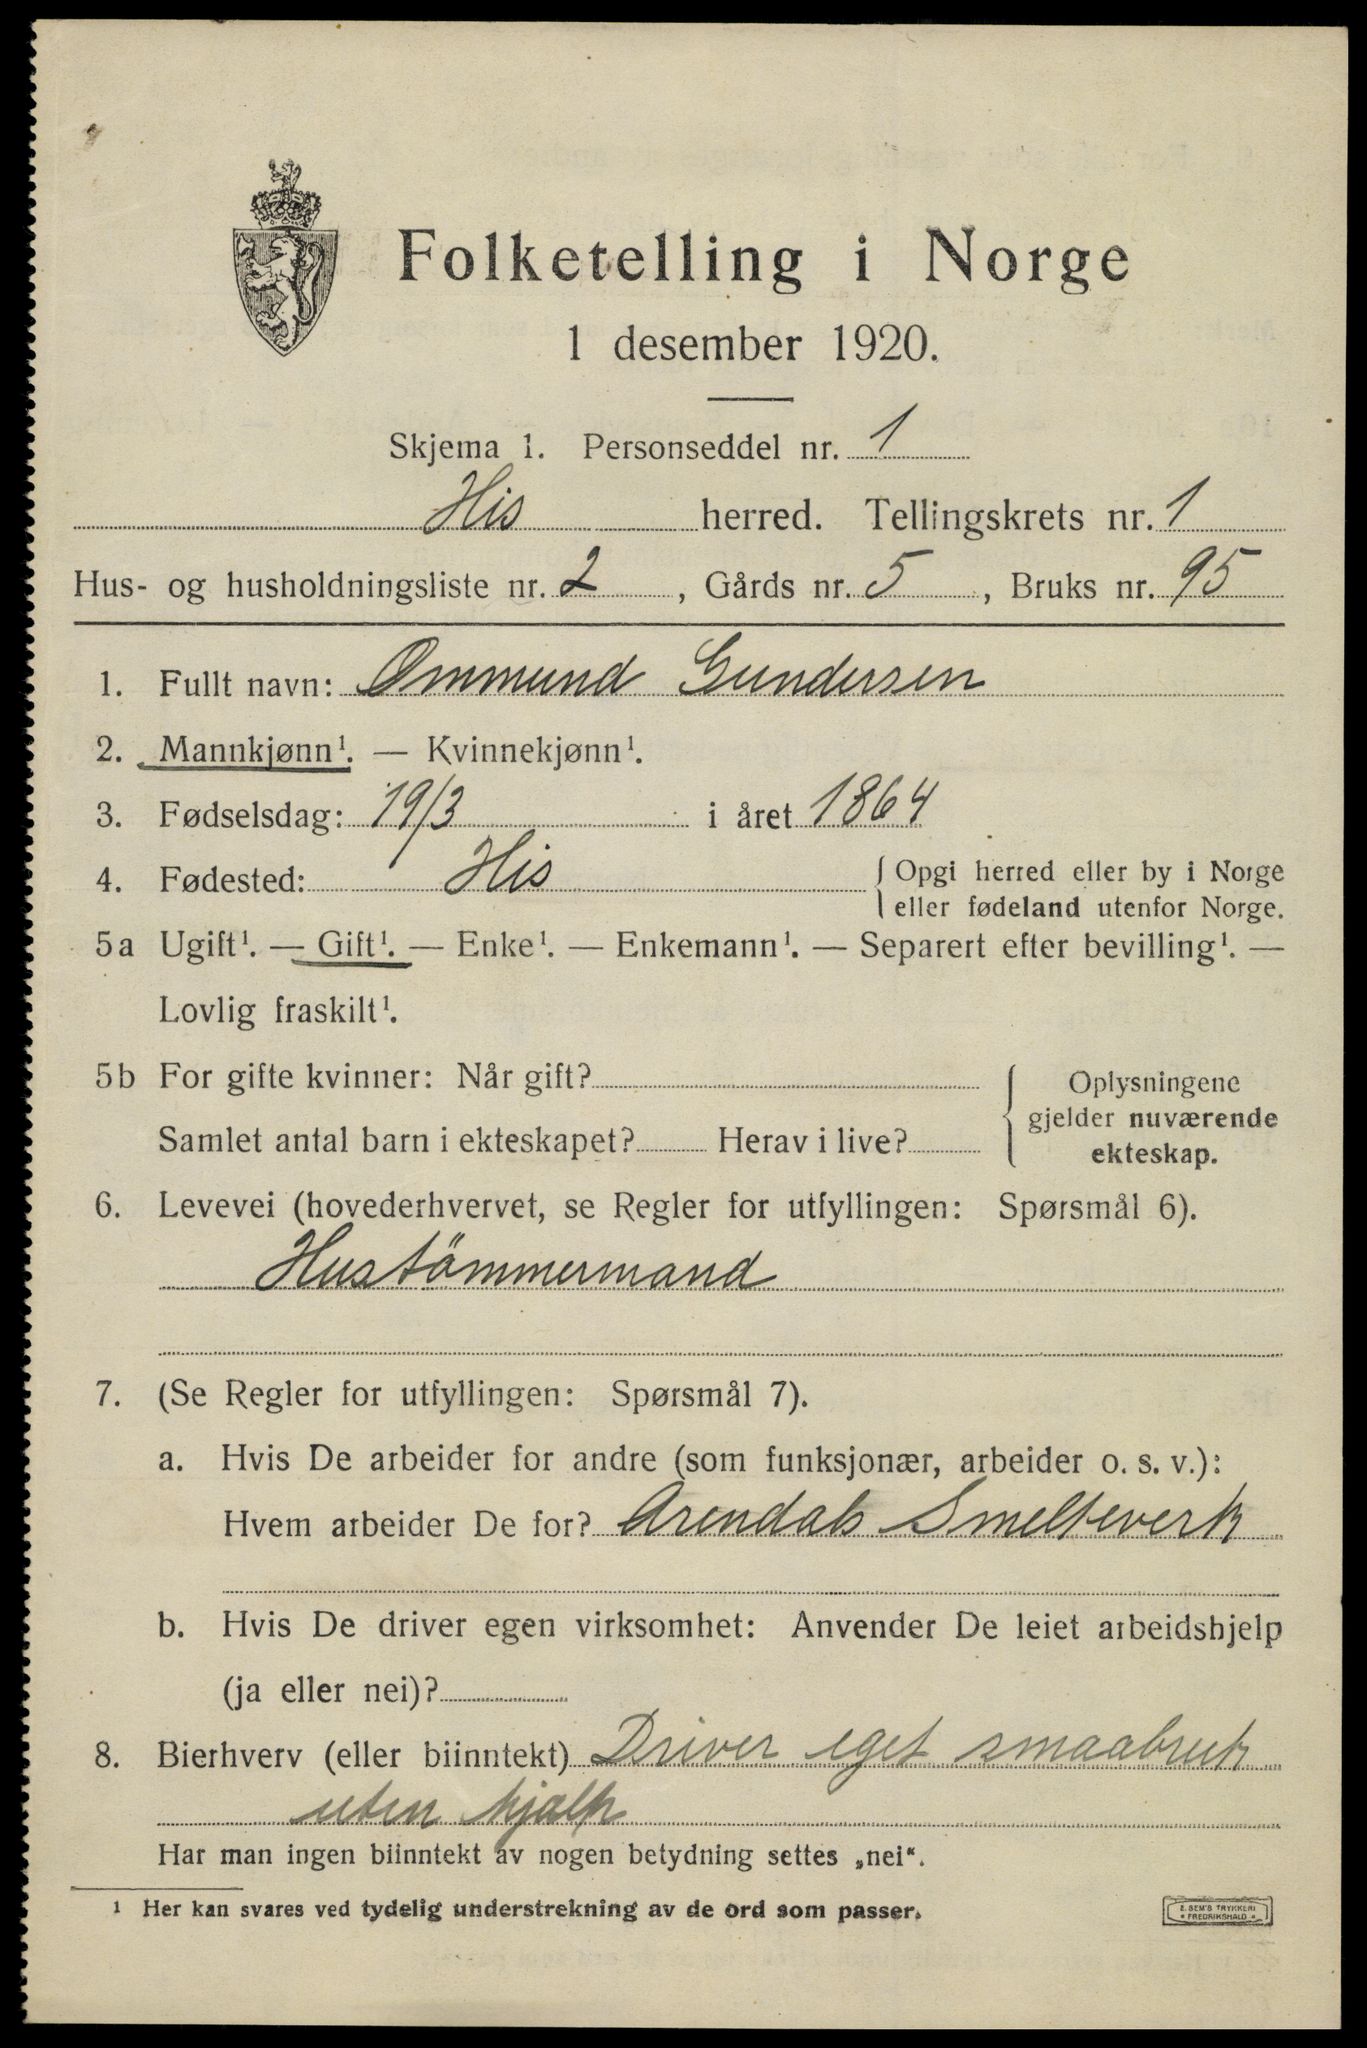 Folketelling i Norge
1 desember 1920.
Skjema 1. Personseddel nr. 1
His herred. Tellingskrets nr. 1
Hus- og husholdningsliste nr. 2, Gårds nr. 5, Bruks nr. 95
1. Fullt navn: Ommund Gundersen
2. Mannkjønn¹. — Kvinnekjønn¹.
3. Fødselsdag: 19/3 i året 1864
4. Fødested: His { Opgi herred eller by i Norge
eller fødeland utenfor Norge.
5a Ugift¹. — Gift¹. — Enke¹. — Enkemann¹. — Separert efter bevilling¹. —
Lovlig fraskilt¹.
5b For gifte kvinner: Når gift? { Oplysningene
gjelder nuværende
Samlet antal barn i ekteskapet? Herav i live? ekteskap.
6. Levevei (hovederhvervet, se Regler for utfyllingen: Spørsmål 6).
Hustömmermand
7. (Se Regler for utfyllingen: Spørsmål 7).
a. Hvis De arbeider for andre (som funksjonær, arbeider o. s. v.):
Hvem arbeider De for? Arendals Smelteverk
b. Hvis De driver egen virksomhet: Anvender De leiet arbeidshjelp
(ja eller nei)?
8. Bierhverv (eller biinntekt) Driver eget smaabruk
uten hjælp
Har man ingen biinntekt av nogen betydning settes „nei“.
¹ Her kan svares ved tydelig understrekning av de ord som passer.
E. SEM'S TRYKKERI
FREDRIKSHALD